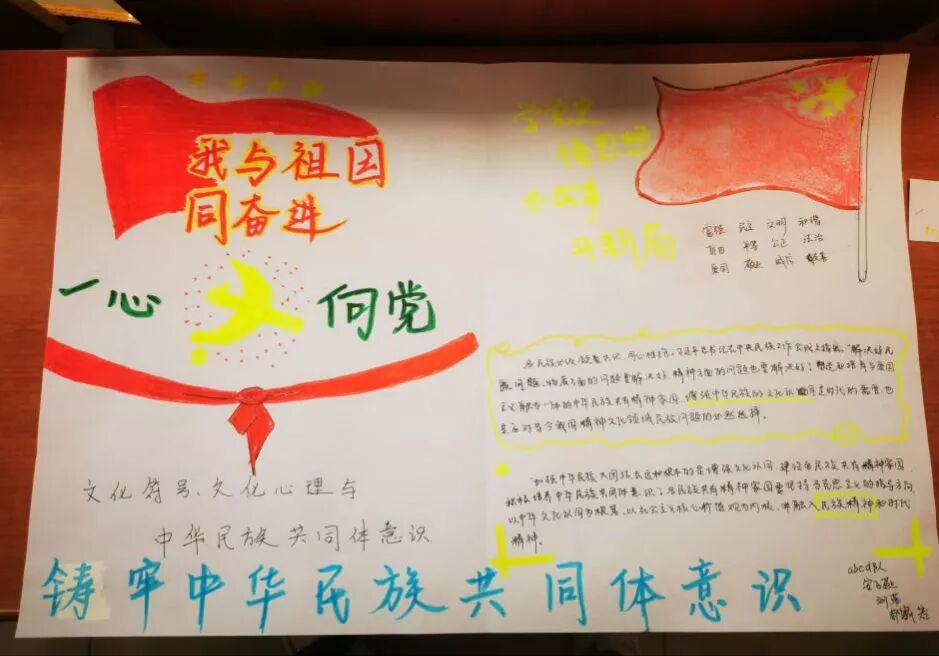 我与祖国
同奋进
一心 向党
文化符号、文化心理与
中华民族共同体意识
铸牢中华民族共同体意识
学党史
悟思想
办实事
开新局
富强 民主 文明 和谐
自由 平等 公正 法治
爱国 敬业 诚信 友善
各民族必须凝聚共识,同心相印。习近平总书记在中央民族工作会议上指出,“解决好民
族问题,物质方面的问题要解决好,精神方面的问题也要解决好;
主义融为一体的中华民族共有精神家园,增强中华民族的文化认同是时代的需要,也
是应对当今我国精神文化领域民族问题的必然选择。
“加强中华民族大团结,长远和根本的是增强文化认同,建设各民族共有精神家园,
积极培养中华民族共同体意识”。各民族共有精神家园要坚持马克思主义的指导方向,
以中华文化认同为根基,以社会主义核心价值观为内核,并融入民族精神和时代
精神。
abcd队